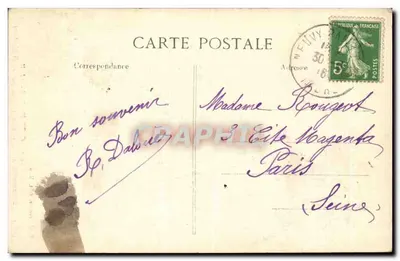 CARTE POSTALE
Correspondance
Adresse
RÉPUBLIQUE FRANÇAISE
5c
POSTES
NEUVY
30
16
Bon souvenir
R.
Madame Rougeot
5 Cité Magenta
Paris
Seine
CARTHAPHILIA